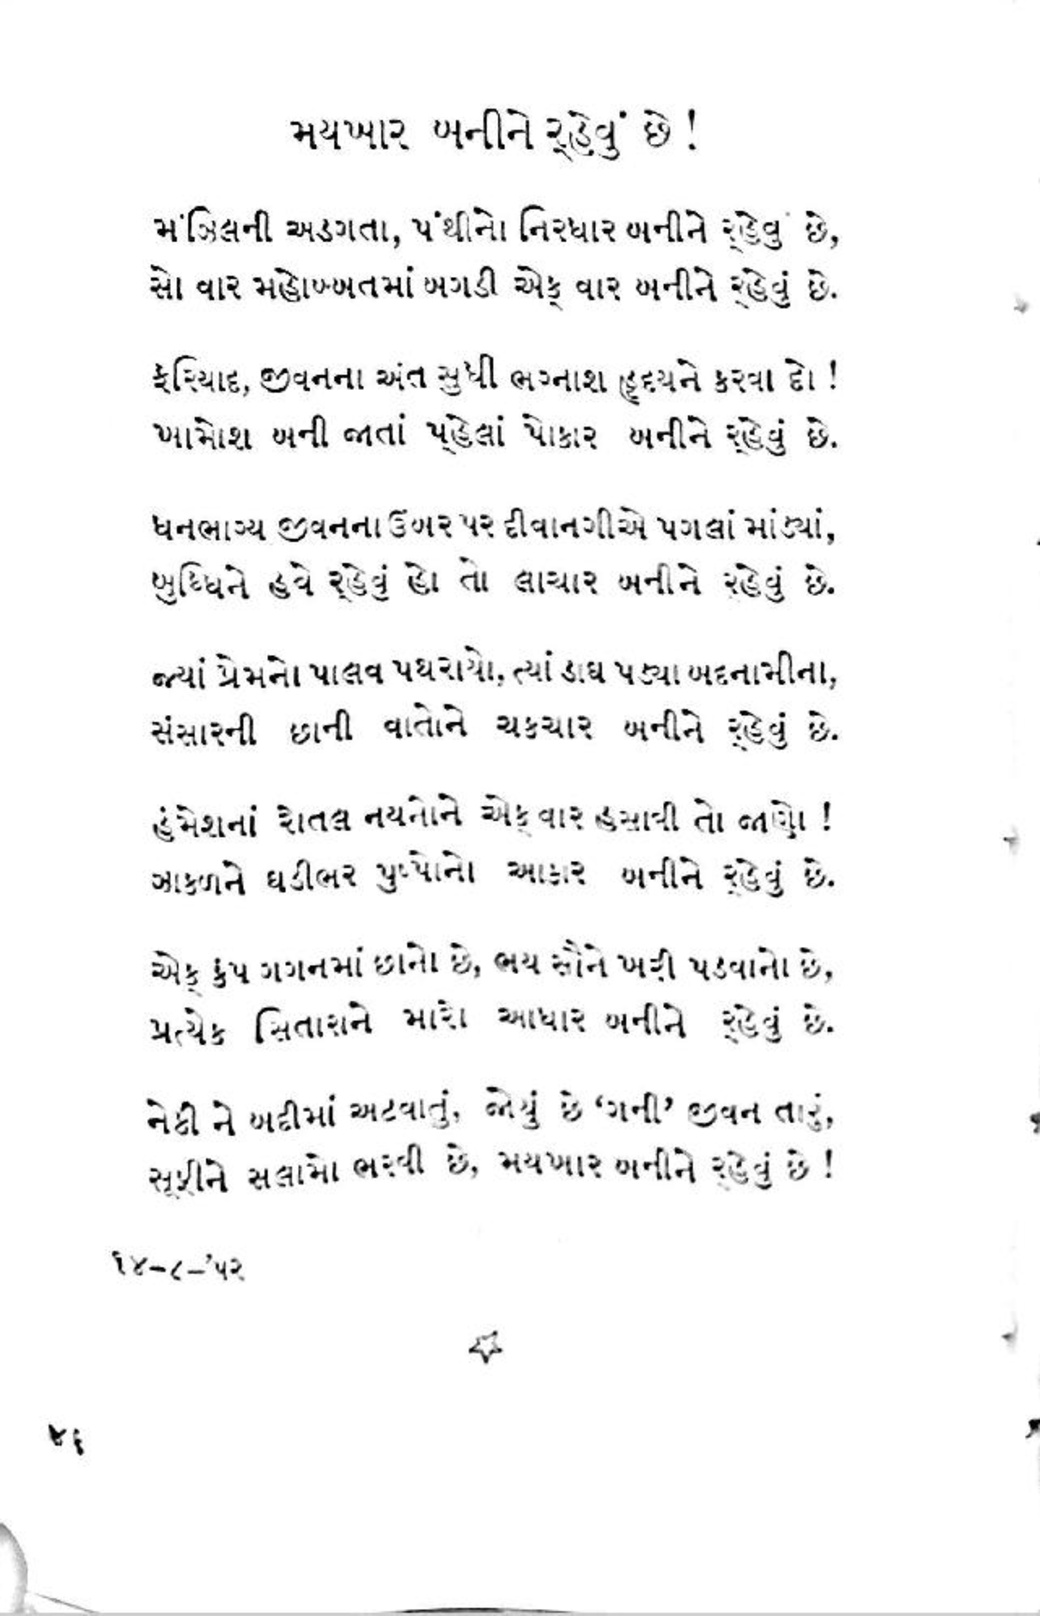 મયખાર બનીને ર્‌હેવું છે !
મંઝિલની અડગતા, પંથીનો નિરધાર બનીને ર્‌હેવું છે,
સો વાર મહોબ્બતમાં બગડી એક્ વાર બનીને ર્‌હેવું છે.
ફરિયાદ, જીવનના અંત સુધી ભગ્નાશ હૃદયને કરવા દો !
ખામોશ બની જાતાં પ્‌હેલાં પોકાર બનીને ર્‌હેવું છે.
ધનભાગ્ય જીવનના ઉંબર પર દીવાનગીએ પગલાં માંડ્યાં,
બુધ્ધિને હવે ર્‌હેવું હો તો લાચાર બનીને ર્‌હેવું છે.
જ્યાં પ્રેમનો પાલવ પથરાયો, ત્યાં ડાઘ પડ્યા બદનામીના,
સંસારની છાની વાતોને ચકચાર બનીને ર્‌હેવું છે.
હંમેશનાં રોતલ નયનોને એક્ વાર હસાવી તો જાણો !
ઝાકળને ઘડીભર પુષ્પોનો આકાર બનીને ર્‌હેવું છે.
એક્ કંપ ગગનમાં છાનો છે, ભય સૌને ખરી પડવાનો છે,
પ્રત્યેક સિતારાને મારો આધાર બનીને ર્‌હેવું છે.
નેકી ને બદીમાં અટવાતું, જોયું છે ‘ગની’ જીવન તારું,
સૂફીને સલામો ભરવી છે, મયખાર બનીને ર્‌હેવું છે !
૧૪-૮-’૫૨
૪૬